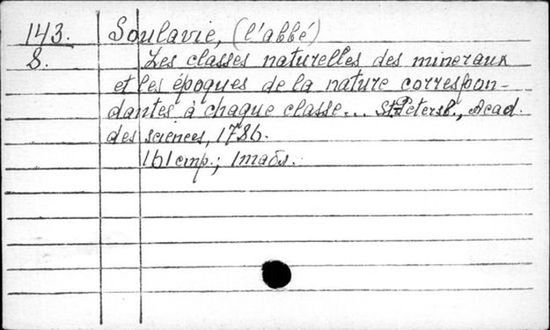 143. Soulavie, (l'abbé)
8. Les classes naturelles des mineraux
et les époques de la nature correspon-
dantes à chaque classe... St. Petersb., Acad.
des sciences, 1786.
161 стр.; 1 табл.